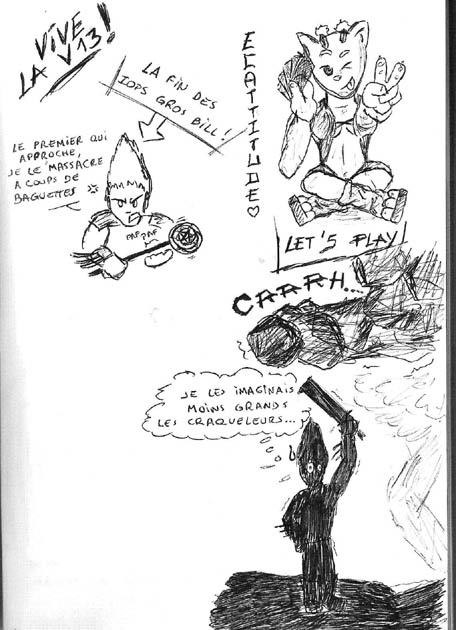 VIVE
LA V13!
LA FIN DES
IOPS GROS BILL!
LE PREMIER QUI
APPROCHE,
JE LE MASSACRE
A COUPS DE
BAGUETTES
PAF PAF
ECATTITUDE
LET'S PLAY
CRAAH....
JE LES IMAGINAIS
MOINS GRANDS
LES CRAQUELEURS...